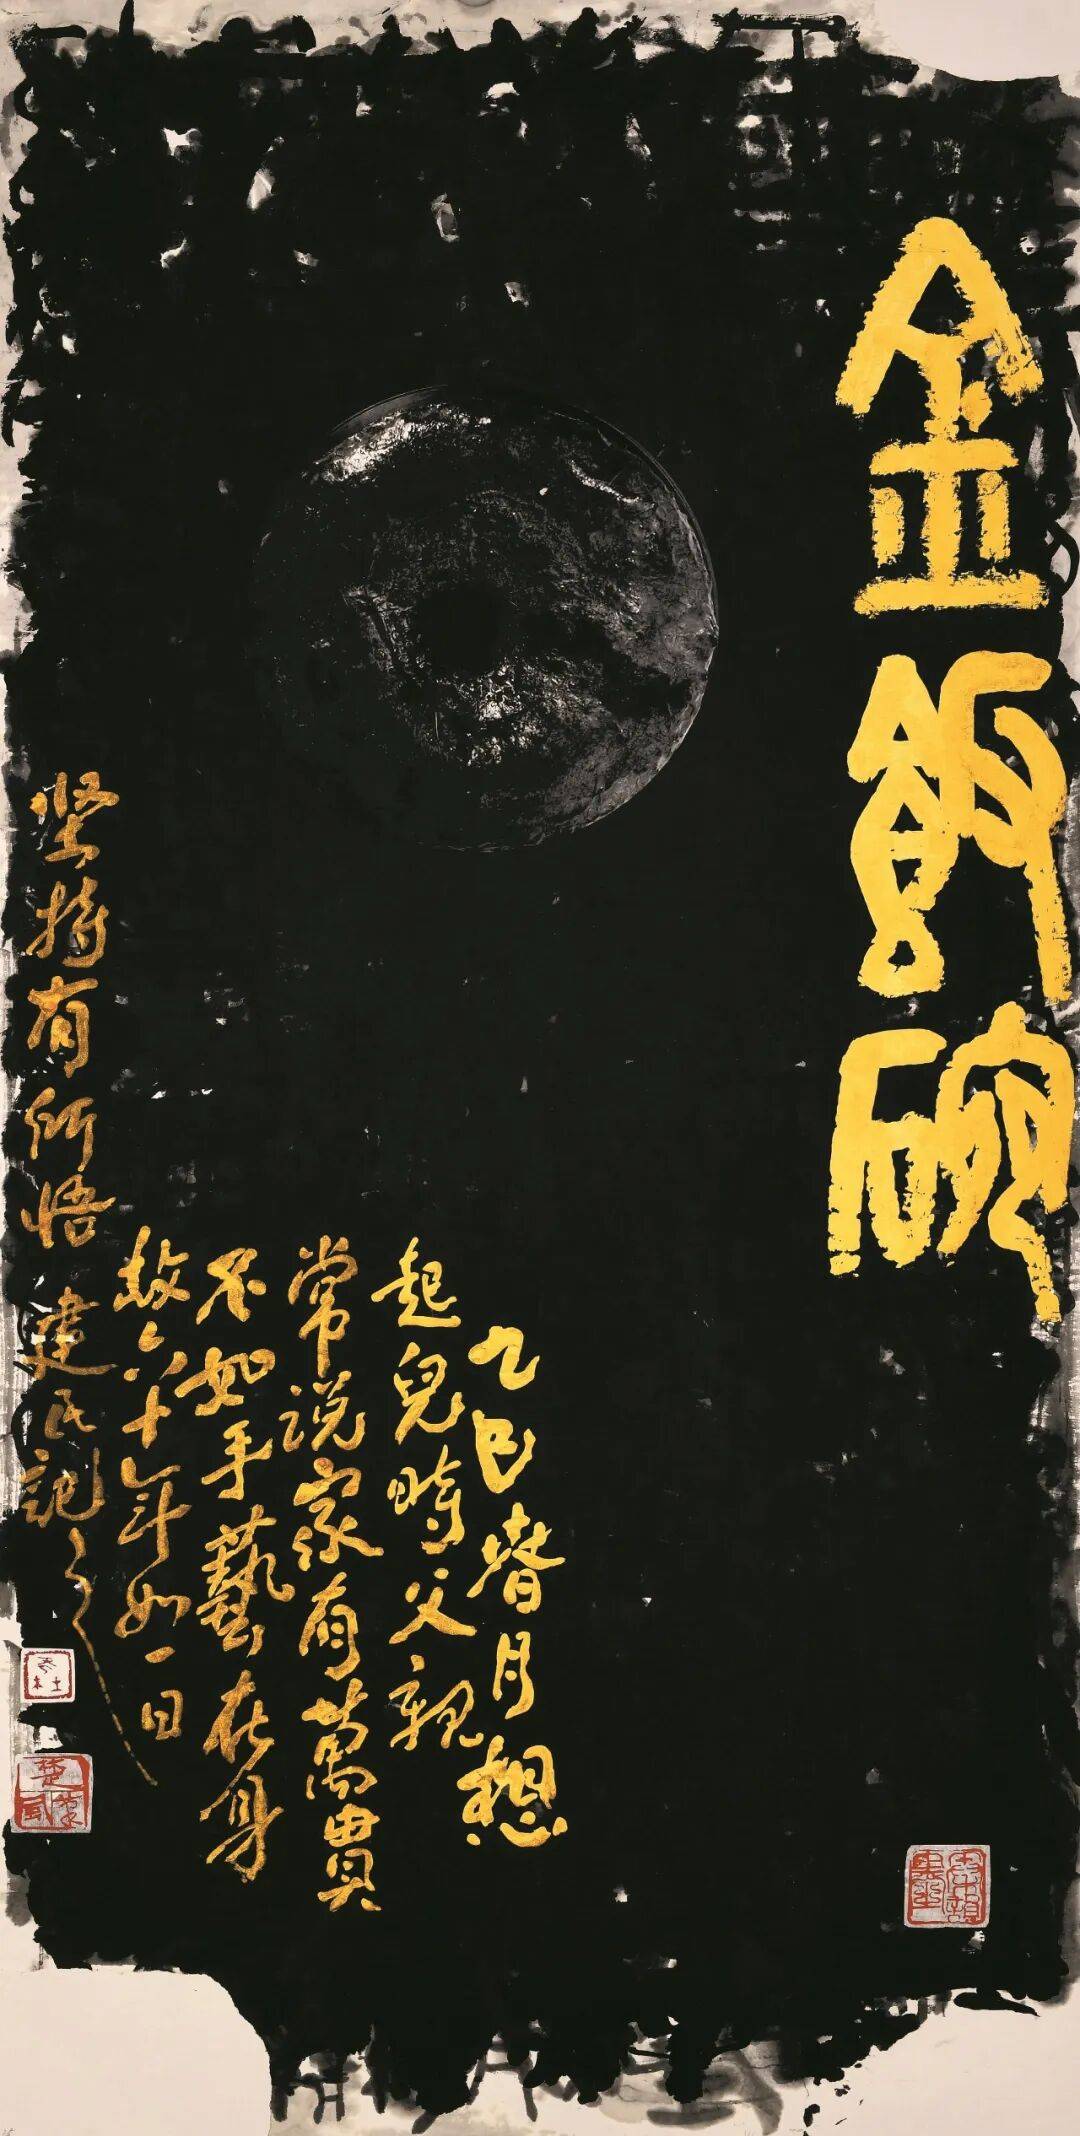 金飯碗
乙巳春月想
起兒時父親
常说家有萬貫
不如手藝在身
故六十年如一日
坚持有所悟 建民記之